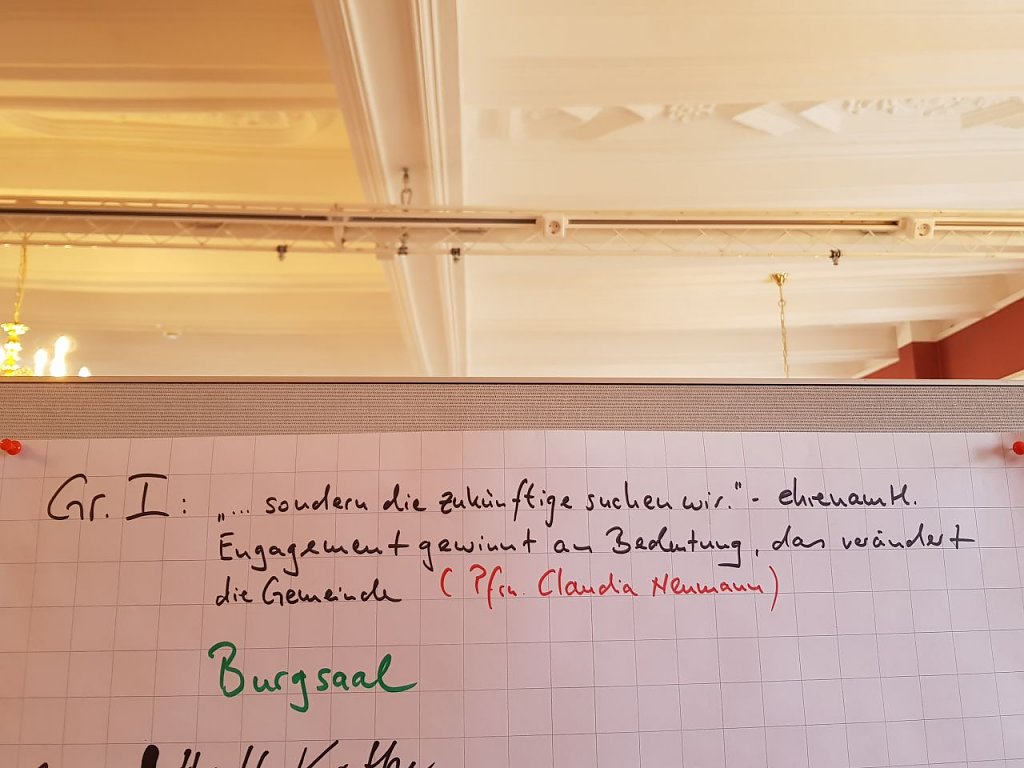 Gr. I: „... sondern die zukünftige suchen wir." - ehrenamtl.
Engagement gewinnt an Bedeutung, das verändert
die Gemeinde (Pfrn. Claudia Neumann)
Burgsaal